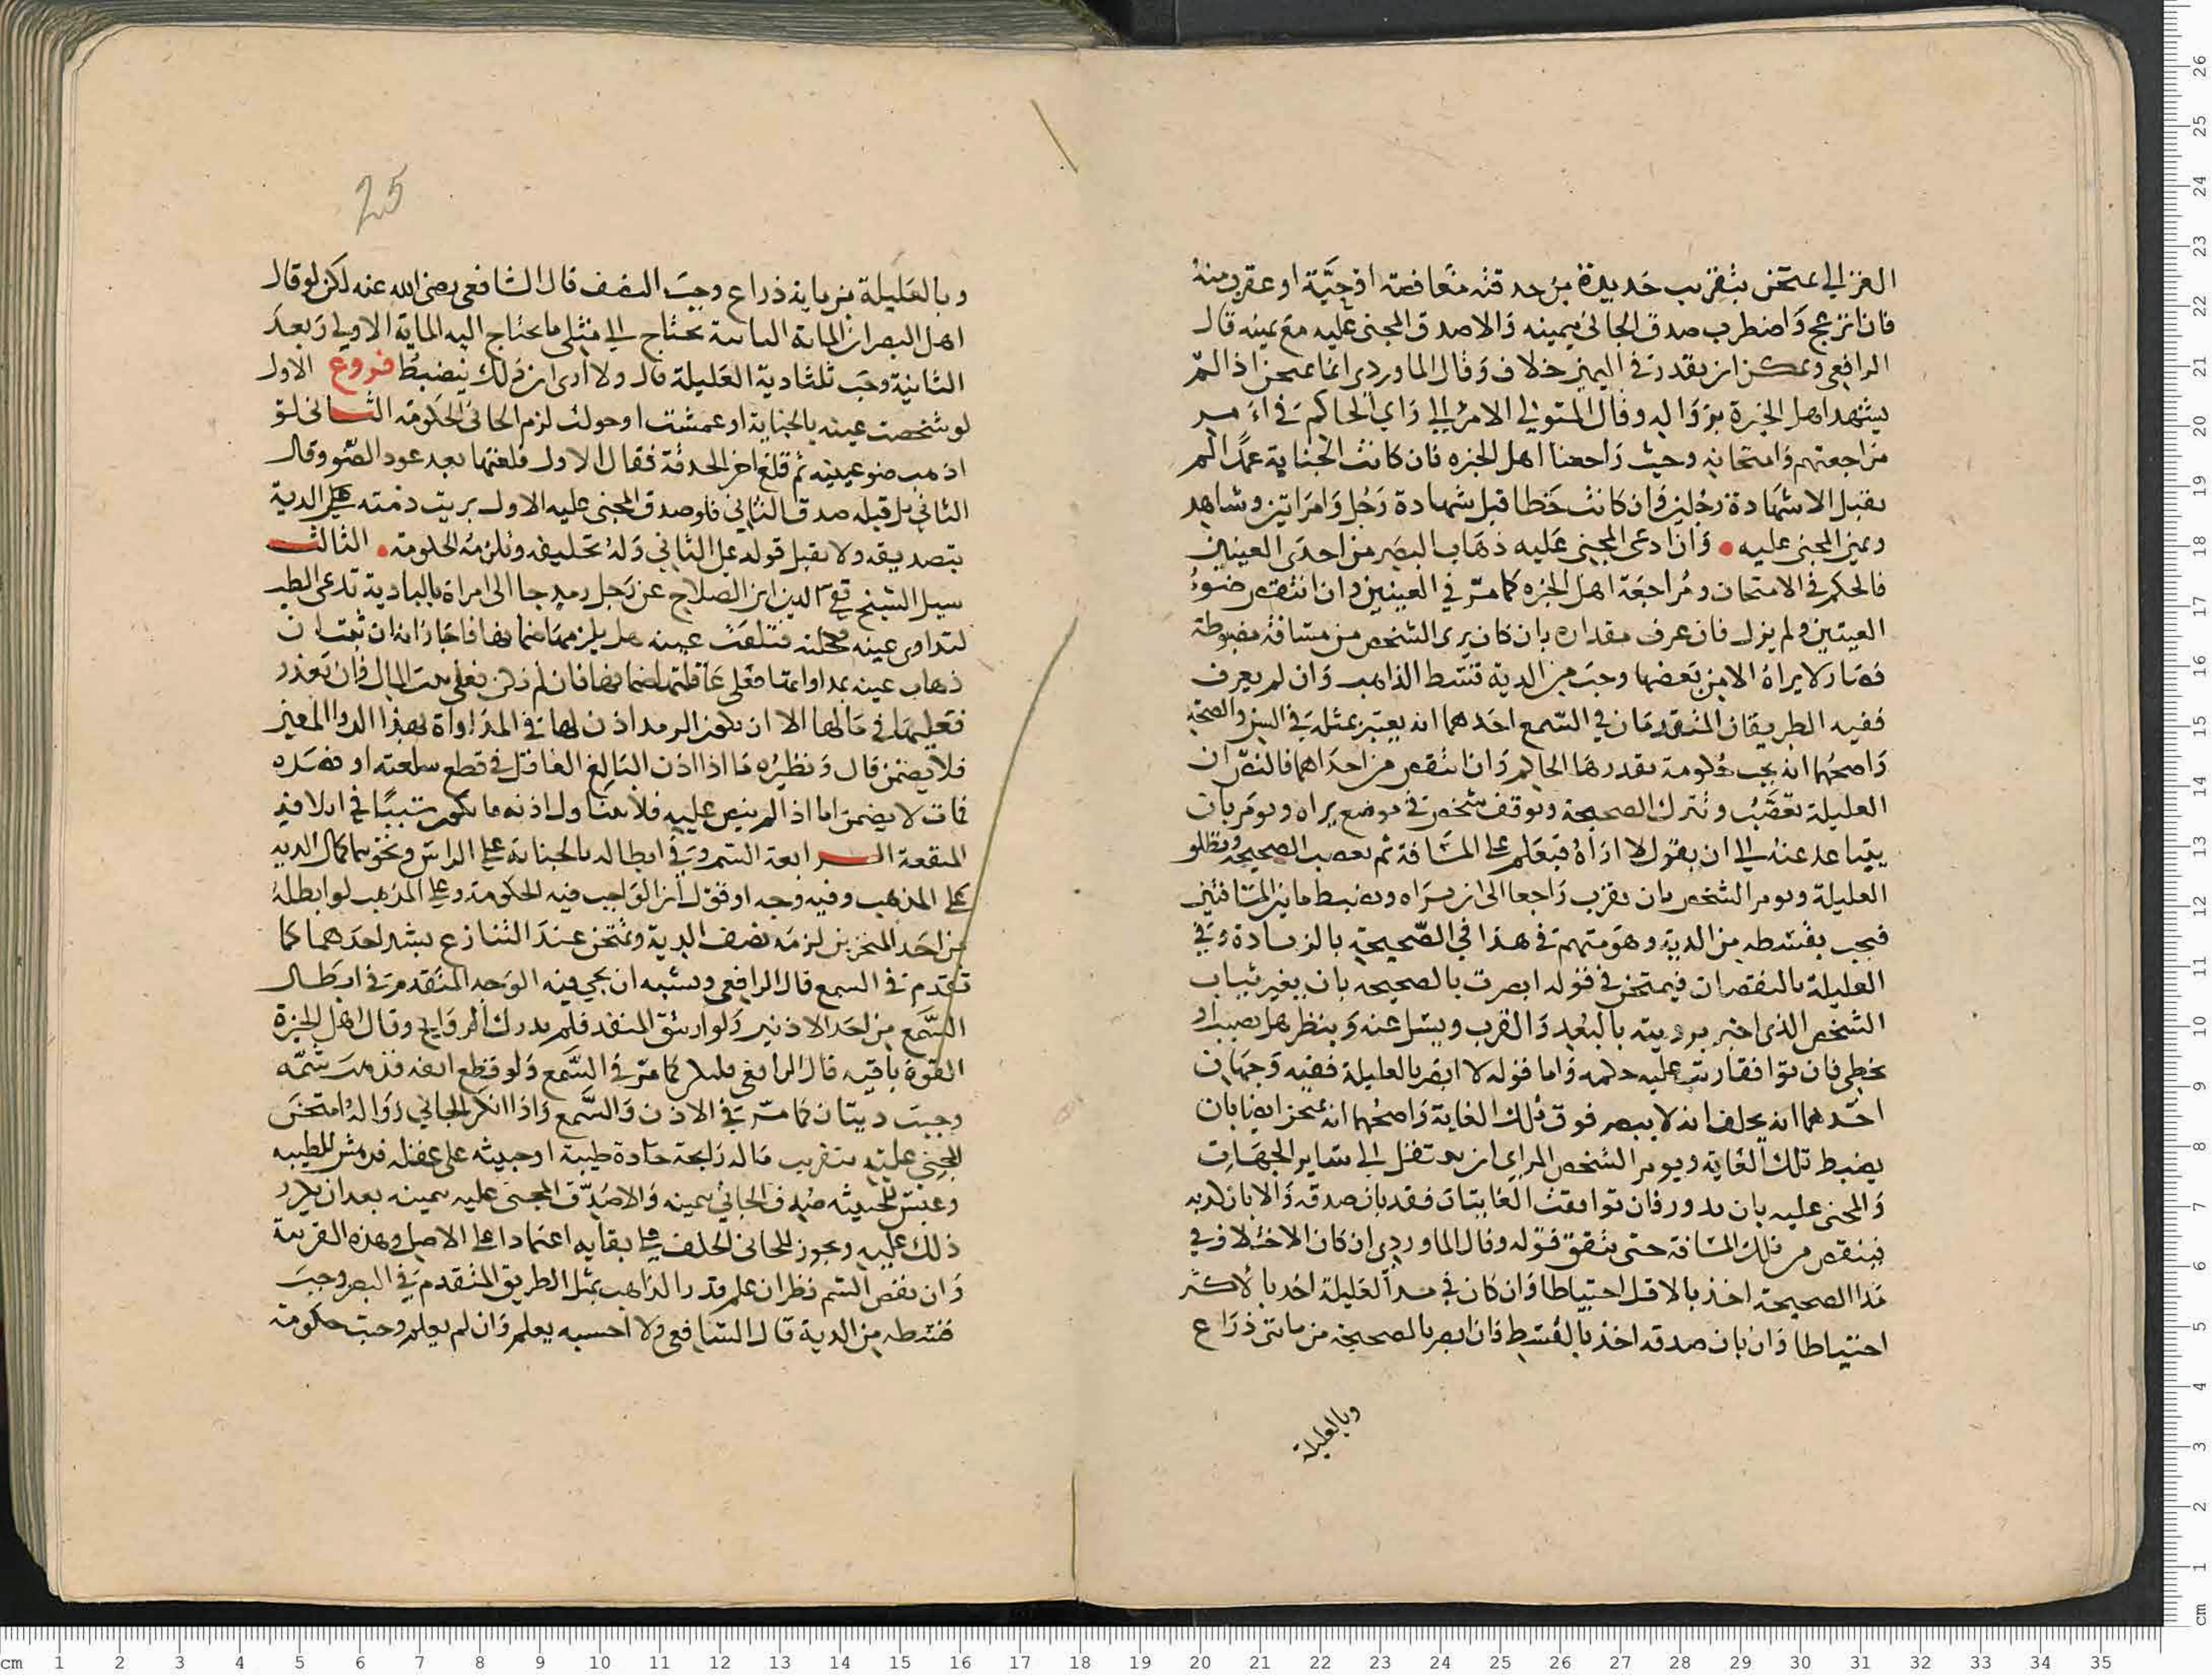 الغزالي يمتحن بتقريب حديدة من حدقته مغافصة او حية او عقرب منه
فان انزعج واضطرب صدق الجاني بيمينه والا صدق المجنى عليه مع يمينه قال
الرافعي ويمكن ان يقدر في اليمين خلاف وقال الماوردى انما يمتحن اذا لم
يشهد اهل الخبرة بزواله وقال المتولي الامر الى راي الحاكم في
مراجعتهم وامتحانه وحيث راجعنا اهل الخبره فان كانت الجناية عمدا لم
يقبل الا شهادة رجلين وان كانت خطا قبل شهادة رجل وامراتين وشاهد
ويمين المجنى عليه وان ادعى المجنى عليه ذهاب البصر من احدى العينين
فالحكم في الامتحان ومراجعة اهل الخبره كما مر في العينين وان انتقص ضوء
العينين ولم يزل فان عرف مقداره بان كان يرى الشخص من مسافة مضبوطة
فصار لا يراه الا من بعضها وجب من الدية قسط الذاهب وان لم يعرف
ففيه الطريقان المتقدمان في السمع احدهما انه يعتبر بمثله في السن والصحة
واصحهما انه يجب حكومة يقدرها الحاكم وان انتقص من احداهما فالنص ان
العليلة تعصب وتترك الصحيحة ويوقف شخص في موضع يراه ويومر بان
يتباعد عنه الى ان يقول لا اراه فيعلم على المسافة ثم تعصب الصحيحة وتطلق
العليلة ويومر الشخص بان يقرب راجعا الى ان يراه ويضبط ما بين المسافتين
فيجب بقسطه من الدية وهو متهم في هذا في الصحيحة بالزيادة وفي
العليلة بالنقصان فيمتحن في قوله ابصرت بالصحيحه بان يغير ثياب
الشخص الذى اخبر برويته بالبعد والقرب ويسل عنه وينظر هل يصيب او
يخطى فان توافقا رتب عليه حكمه واما قوله لا ابصر بالعليلة ففيه وجهان
احدهما انه يحلف انه لا يبصر فوق تلك الغاية واصحهما انه يمتحن ايضا بان
يضبط تلك الغاية ويومر الشخص المراى ان ينتقل الى ساير الجهات
والمجنى عليه بان يدور فان توافقت الغايتان فقد بان صدقه والا بان كذبه
فينقص من تلك المسافة حتى يتفق قوله وقال الماوردى ان كان الاختلاف في
مدا الصحيحة اخذ بالاقل احتياطا وان كان في مدا العليلة اخذ بالاكثر
احتياطا وان بان صدقه اخذ بالقسط فان ابصر بالصحيحة من مائتى ذراع
وبالعليلة
25
وبالعليلة من ماية ذراع وجب النصف قال الشافعى رضى الله عنه لكن لو قال
اهل البصر ان الماية الثانية تحتاج الى مثلى ما يحتاج اليه الماية الاولى وبعد
الثانية وجب ثلثا دية العليلة قال ولا ادرى ان ذلك ينضبط فروع الاول
لو شخصت عينه بالجناية او عمشت او حولت لزم الجانى الحكومة الثانى لو
اذهب ضو عينيه ثم قلع اخر الحدقة فقال الاول قلعتها بعد عود الضو وقال
الثاني بل قبله صدق الثاني فلو صدق المجنى عليه الاول بريت ذمته عن الدية
بتصديقه ولا يقبل قوله على الثاني وله تحليفه وتلزمه الحكومة الثالث
سيل الشيخ تقي الدين ابن الصلاح عن رجل رمد جا الى امراة بالبادية تدعى الطب
لتداوى عينه فكحلته فتلفت عينه هل يلزمها ضمانها فاجاز انه ان ثبت ان
ذهاب عينه بمداواتها فعلى عاقلتها ضمانها فان لم تكن فعلى بيت المال فان تعذر
فعليها في مالها الا ان يكون الرمد اذن لها في المداواة بهذا الدوا المعين
فلا يضمن قال ونظيره ما اذا اذن البالغ العاقل في قطع سلعته او فصده
فمات لا يضمن اما اذا لم ينص عليه فلا يتناول اذنه ما يكون سببا في اتلافه
المنفعة الرابعة الشم وفي ابطاله بالجناية على الراس ونحوها كمال الدية
على المذهب وفيه وجه او قول ان الواجب فيه الحكومة وعلى المذهب لو ابطله
من احد المنخرين لزمه نصف الدية ويمتحن عند التنازع بشم احدهما كما
تقدم في السمع قال الرافعى ويشبه ان يجي فيه الوجه المتقدم في ابطال
السمع من احد الاذنين ولو ارتتق المنفذ فلم يدرك الروايح وقال اهل الخبرة
القوة باقيه قال الرافعى فليكن كما مر في السمع ولو قطع انفه فذهب شمه
وجبت ديتان كما مر في الاذن والسمع واذا انكر الجاني زواله امتحن
المجنى عليه بتقريب ما له رايحة حادة طيبة او خبيثه على غفله فان هش للطيبه
وعبس للخبيثه صدق الجاني بيمينه والا صدق المجنى عليه بيمينه بعد ان يكرر
ذلك عليه ويجوز للجانى الحلف على بقايه اعتمادا على الاصل وهذه القرينة
وان نقص الشم نظر ان علم قدر الذاهب بمثل الطريق المتقدم في البصر وجب
قسطه من الدية قال الشافعى ولا احسبه يعلم وان لم يعلم وجبت حكومة